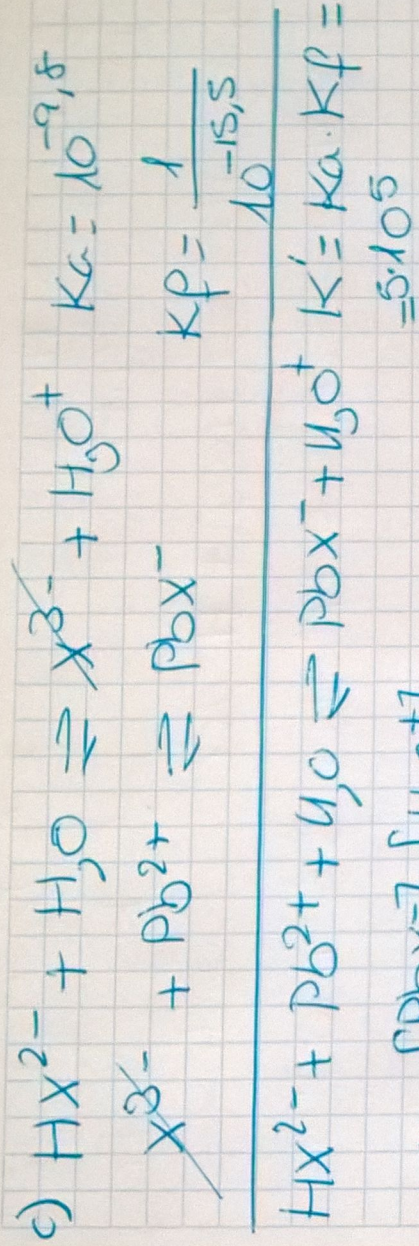 c) HX²⁻ + H₂O ⇌ X³⁻ + H₃O⁺ Ka = 10⁻⁹,⁸
X³⁻ + Pb²⁺ ⇌ PbX⁻ Kf = 1/10⁻¹⁵,⁵
HX²⁻ + Pb²⁺ + H₂O ⇌ PbX⁻ + H₃O⁺ K' = Ka · Kf =
= 5·10⁵